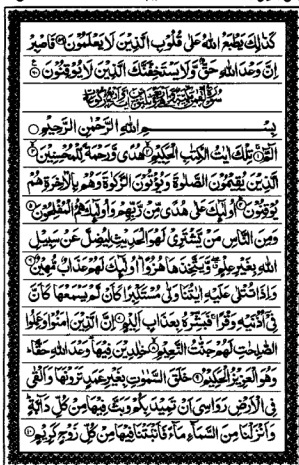 كَذٰلِكَ يَطْبَعُ اللهُ عَلٰى قُلُوْبِ الَّذِيْنَ لَا يَعْلَمُوْنَ ۝۵۹ فَاصْبِرْ
اِنَّ وَعْدَ اللهِ حَقٌّ وَّلَا يَسْتَخِفَّنَّكَ الَّذِيْنَ لَا يُوْقِنُوْنَ ۝۶۰
بِسْمِ اللهِ الرَّحْمٰنِ الرَّحِيْمِ ۝
الٓمّٓ ۝۱ تِلْكَ اٰيٰتُ الْكِتٰبِ الْحَكِيْمِ ۝۲ هُدًى وَّرَحْمَةً لِّلْمُحْسِنِيْنَ ۝۳
الَّذِيْنَ يُقِيْمُوْنَ الصَّلٰوةَ وَيُؤْتُوْنَ الزَّكٰوةَ وَهُمْ بِالْاٰخِرَةِ هُمْ
يُوْقِنُوْنَ ۝۴ اُولٰٓئِكَ عَلٰى هُدًى مِّنْ رَّبِّهِمْ وَاُولٰٓئِكَ هُمُ الْمُفْلِحُوْنَ ۝۵
وَمِنَ النَّاسِ مَنْ يَّشْتَرِيْ لَهْوَ الْحَدِيْثِ لِيُضِلَّ عَنْ سَبِيْلِ
اللهِ بِغَيْرِ عِلْمٍ وَّيَتَّخِذَهَا هُزُوًا اُولٰٓئِكَ لَهُمْ عَذَابٌ مُّهِيْنٌ ۝۶
وَاِذَا تُتْلٰى عَلَيْهِ اٰيٰتُنَا وَلّٰى مُسْتَكْبِرًا كَاَنْ لَّمْ يَسْمَعْهَا كَاَنَّ
فِيْٓ اُذُنَيْهِ وَقْرًا فَبَشِّرْهُ بِعَذَابٍ اَلِيْمٍ ۝۷ اِنَّ الَّذِيْنَ اٰمَنُوْا وَعَمِلُوا
الصّٰلِحٰتِ لَهُمْ جَنّٰتُ النَّعِيْمِ ۝۸ خٰلِدِيْنَ فِيْهَا وَعْدَ اللهِ حَقًّا
وَهُوَ الْعَزِيْزُ الْحَكِيْمُ ۝۹ خَلَقَ السَّمٰوٰتِ بِغَيْرِ عَمَدٍ تَرَوْنَهَا وَاَلْقٰى
فِي الْاَرْضِ رَوَاسِيَ اَنْ تَمِيْدَ بِكُمْ وَبَثَّ فِيْهَا مِنْ كُلِّ دَآبَّةٍ
وَاَنْزَلْنَا مِنَ السَّمَآءِ مَآءً فَاَنْۢبَتْنَا فِيْهَا مِنْ كُلِّ زَوْجٍ كَرِيْمٍ ۝۱۰